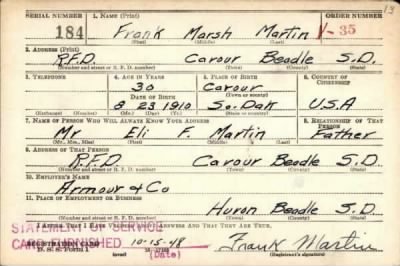 SERIAL NUMBER 1. NAME (Print) ORDER NUMBER 13
184 Frank Marsh Martin V-35
(First) (Middle) (Last)
2. ADDRESS (Print)
R.F.D. Cavour Beadle S.D.
(Number and street or R. F. D. number) (Town) (County) (State)
3. TELEPHONE 4. AGE IN YEARS 5. PLACE OF BIRTH 6. COUNTRY OF CITIZENSHIP
30 Cavour
DATE OF BIRTH (Town or county)
8 23 1910 So. Dak U.S.A
(Exchange) (Number) (Mo.) (Day) (Yr.) (State or country)
7. NAME OF PERSON WHO WILL ALWAYS KNOW YOUR ADDRESS 8. RELATIONSHIP OF THAT PERSON
Mr Eli F. Martin Father
(Mr., Mrs., Miss) (First) (Middle) (Last)
9. ADDRESS OF THAT PERSON
R.F.D. Cavour Beadle S.D.
(Number and street or R. F. D. number) (Town) (County) (State)
10. EMPLOYER'S NAME
Armour & Co
11. PLACE OF EMPLOYMENT OR BUSINESS
Huron Beadle S.D.
(Number and street or R. F. D. number) (Town) (County) (State)
I AFFIRM THAT I HAVE VERIFIED ABOVE ANSWERS AND THAT THEY ARE TRUE.
STATEMENT OF SERVICE
CARD FURNISHED 10-15-48 Frank Martin
REGISTRATION CARD
D. S. S. Form 1 (over) (Date) (Registrant's signature)